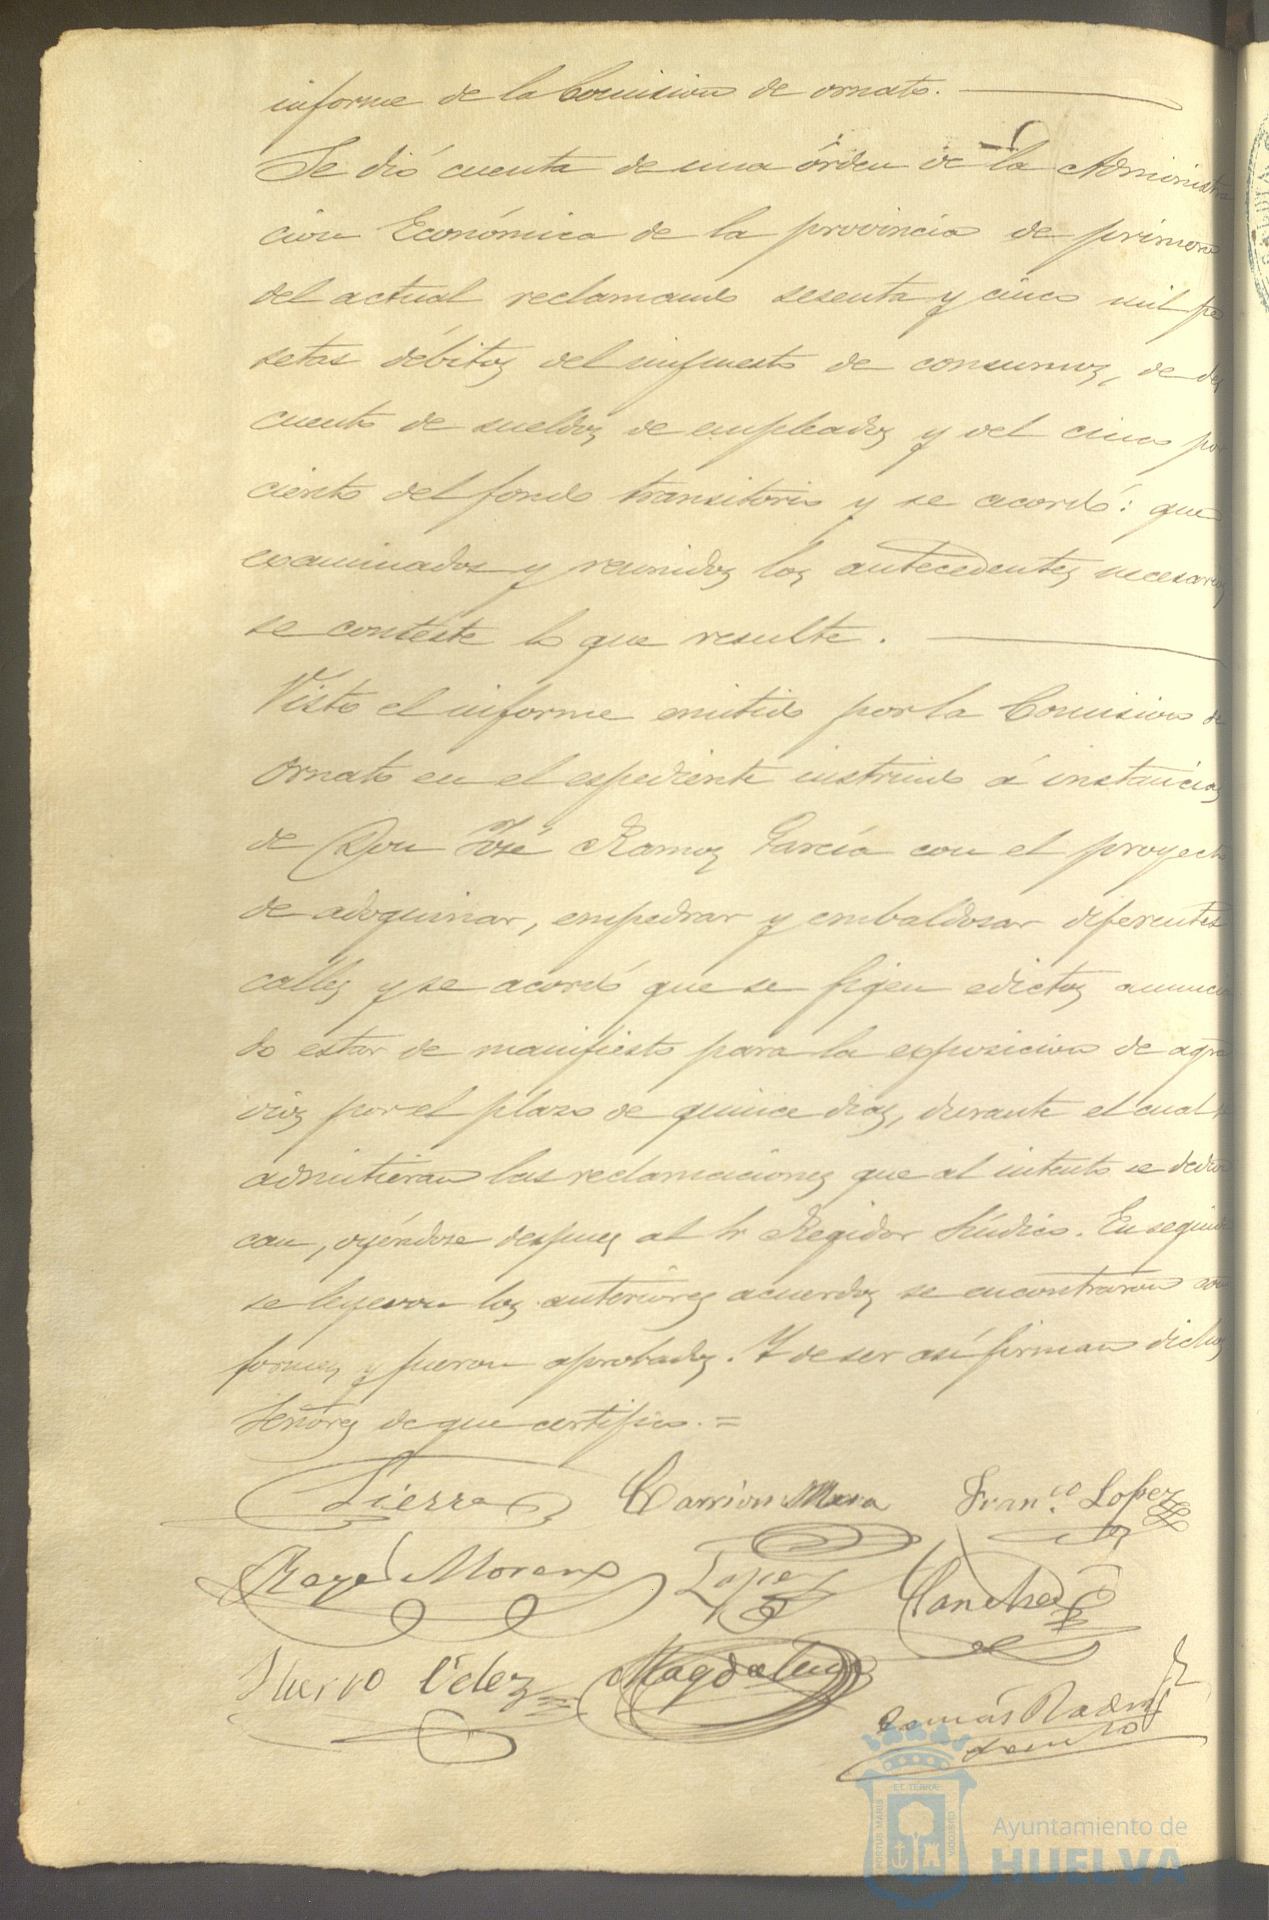 informe de la Comision de ornato.
Se dió cuenta de una órden de la Administra
cion Económica de la provincia de primero
del actual reclamando sesenta y cinco mil pe
setas débitos del impuesto de consumos, de des
cuento de sueldos de empleados y del cinco por
ciento del fondo transitorio y se acordó: que
examinados y reunidos los antecedentes necesarios
se conteste lo que resulte.
Visto el informe emitido por la Comision de
Ornato en el espediente instruido á instancias
de Don José Ramos García con el proyecto
de adoquinar, empedrar y embaldosar diferentes
calles y se acordó que se fijen edictos anuncian
do estar de manifiesto para la esposicion de agra
vios por el plazo de quince dias, durante el cual se
admitieran las reclamaciones que al intento se deduz
can, oyéndose despues al Sr Regidor Síndico. En seguida
se leyeron los anteriores acuerdos se encontraron con
formes y fueron aprobados. Y de ser así firman dichos
Señores de que certifico. =
Sierra Carrion Mora Fran.co Lopez
Moreno Lopez Sanchez
Velez Magdaleno
Tomás
PORTUS MARIS ET TERRAE CUSTODIA
Ayuntamiento de
HUELVA